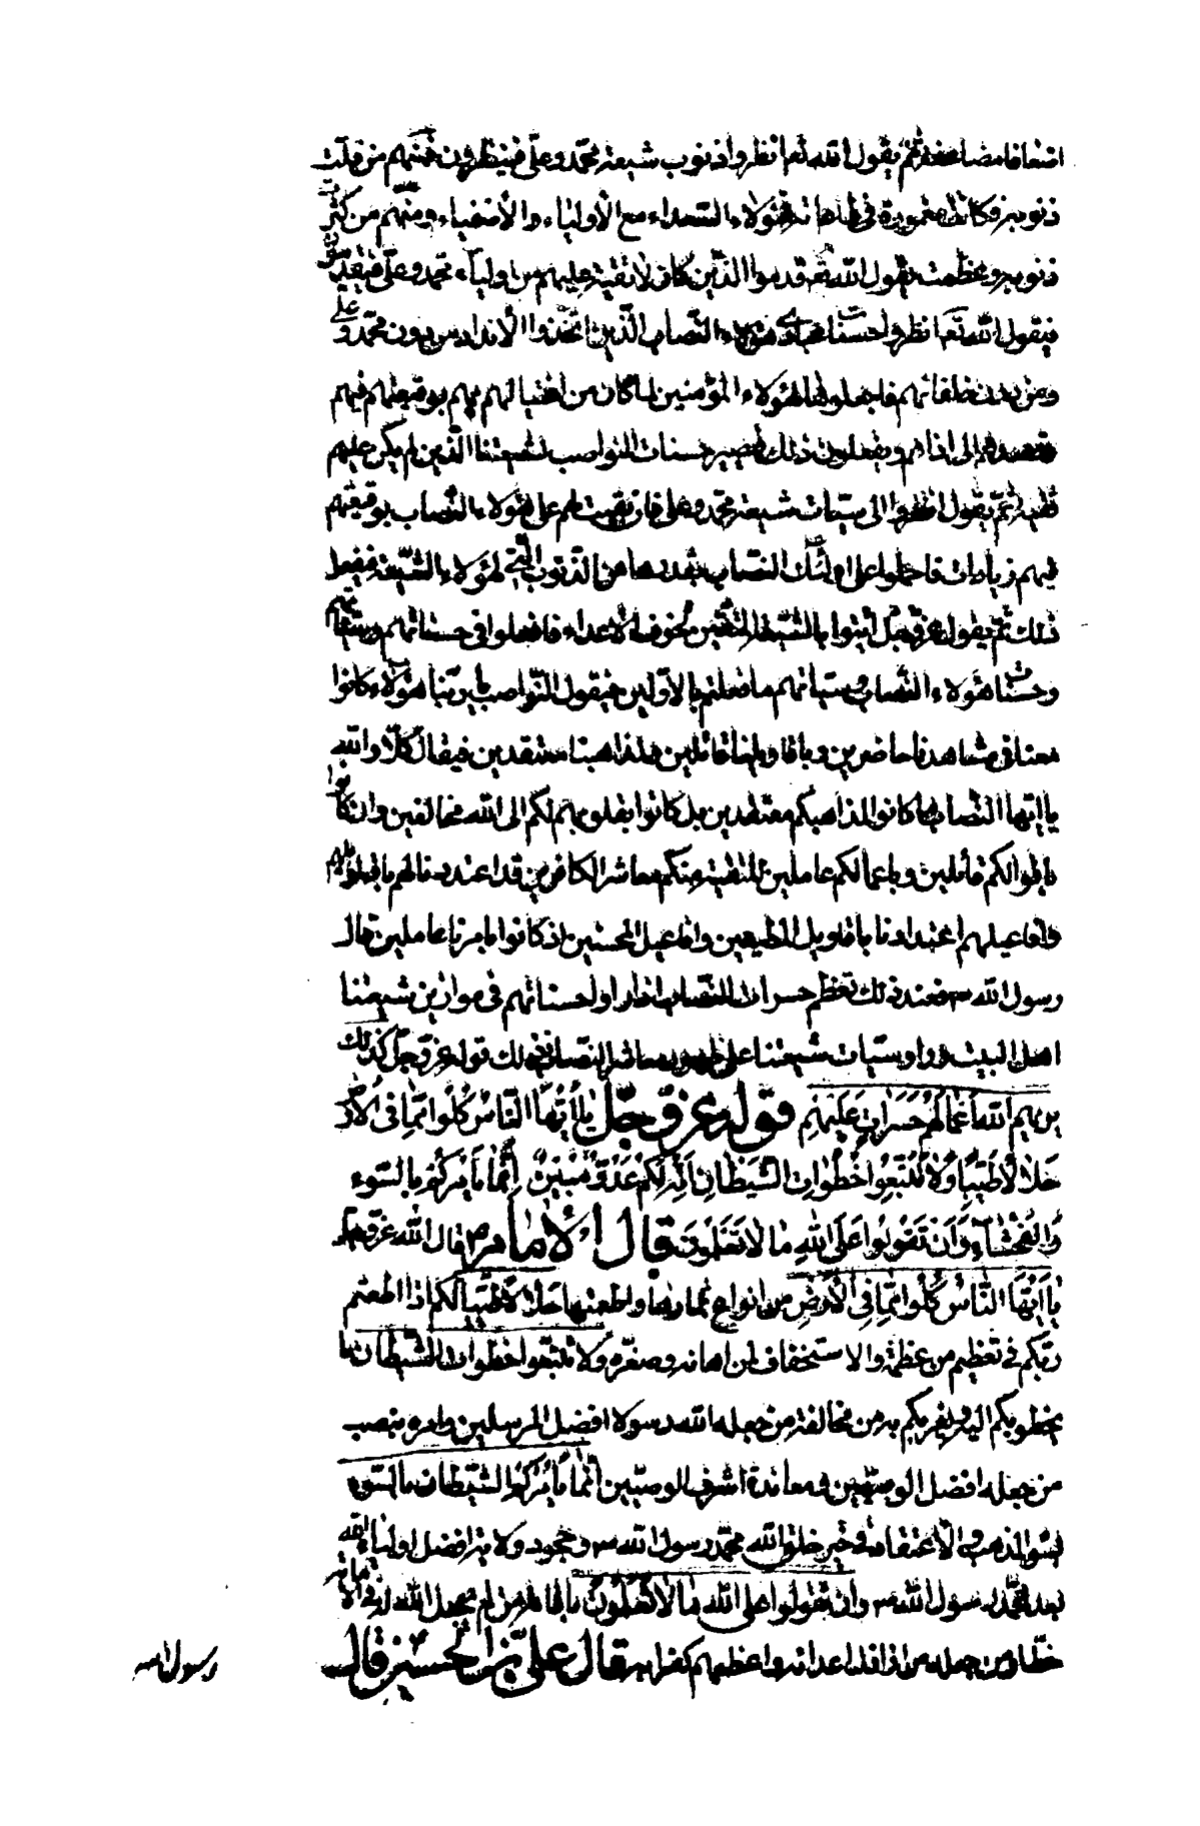 اضعافا مضاعفة ثم يقول الله تعا انظروا ذنوب شيعة محمد وعلى فينظرون فمنهم من قلت
ذنوبه وكانت مغمورة فى طاعاته فهؤلاء السعداء مع الأولياء والأصفياء ومنهم من كثرت
ذنوبه وعظمت يقول الله تع قدموا الذين كان لا تقية عليهم من اولياء محمد وعلى فيقدمون
فيقول الله تعا انظروا حسنات عبادى هؤلاء النصاب الذين اتخذوا الأنداد من دون محمد وعلى
ومن خلفائهم فاجعلوها لهؤلاء المؤمنين لما كان من اغتيالهم بهم بوقيعتهم فيهم
وقصدهم الى اذاهم فيفعلون ذلك فتصير حسنات النواصب لشيعتنا الذين لم يكن عليهم
تقية ثم يقول انظروا الى سيئات شيعة محمد وعلى فان بقيت لهم على هؤلاء النصاب بوقيعتهم
فيهم زيادات فاحملوا على اولئك النصاب بقدرها من الذنوب التى لهؤلاء الشيعة فيفعل
ذلك ثم يقول عز وجل ائتوا بالشيعة المتقين لخوف الأعداء فافعلوا فى حسناتهم وسيئاتهم
وحسنات هؤلاء النصاب وسيئاتهم ما فعلتم بالأولين فيقول النواصب يا ربنا هؤلاء كانوا
معنا فى مشاهدنا حاضرين وباقاويلنا قائلين ولمذاهبنا معتقدين فيقال كلا والله
يا ايها النصاب ما كانوا لمذاهبكم معتقدين بل كانوا بقلوبهم لكم الى الله مخالفين وان كانوا
باقوالكم قائلين وباعمالكم عاملين للتقية منكم معاشر الكافرين قد اعتددنا لهم باقاويلهم
وافاعيلهم اعتدادنا باقاويل المطيعين وافاعيل المحسنين اذ كانوا بامرنا عاملين قال
رسول الله ص فعند ذلك تعظم حسرات النصاب اذا راوا حسناتهم فى موازين شيعتنا
اهل البيت وراوا سيئات شيعتنا على ظهور معاشر النصاب وذلك قوله عز وجل كذلك
يريهم الله اعمالهم حسرات عليهم قوله عز وجل يا ايها الناس كلوا مما فى الأرض
حلالا طيبا ولا تتبعوا خطوات الشيطان انه لكم عدو مبين انما يأمركم بالسوء
والفحشاء وان تقولوا على الله ما لا تعلمون قال الامام قال الله عز وجل
يا ايها الناس كلوا مما فى الأرض من انواع ثمارها واطعمتها حلالا طيبا لكم اذا اطعتم
ربكم فى تعظيم من عظمه والاستخفاف لمن اهانه وصغره ولا تتبعوا خطوات الشيطان ما
يخطو بكم اليه ويغركم به من مخالفة من جعله الله رسولا افضل المرسلين وامره بنصب
من جعله افضل الوصيين ومعاندة اشرف الوصيين انما يأمركم الشيطان بالسوء
بسوء المذهب والأعتقاد فى خير خلق الله محمد رسول الله ص وجحود ولاية افضل اولياء الله
بعد محمد رسول الله ص وان تقولوا على الله ما لا تعلمون بامامة من لم يجعل الله له فى الأمامة
حظا ومن جعله من اراذل اعدائه واعظمهم كفرا به قال على بن الحسين ع قال
رسول الله